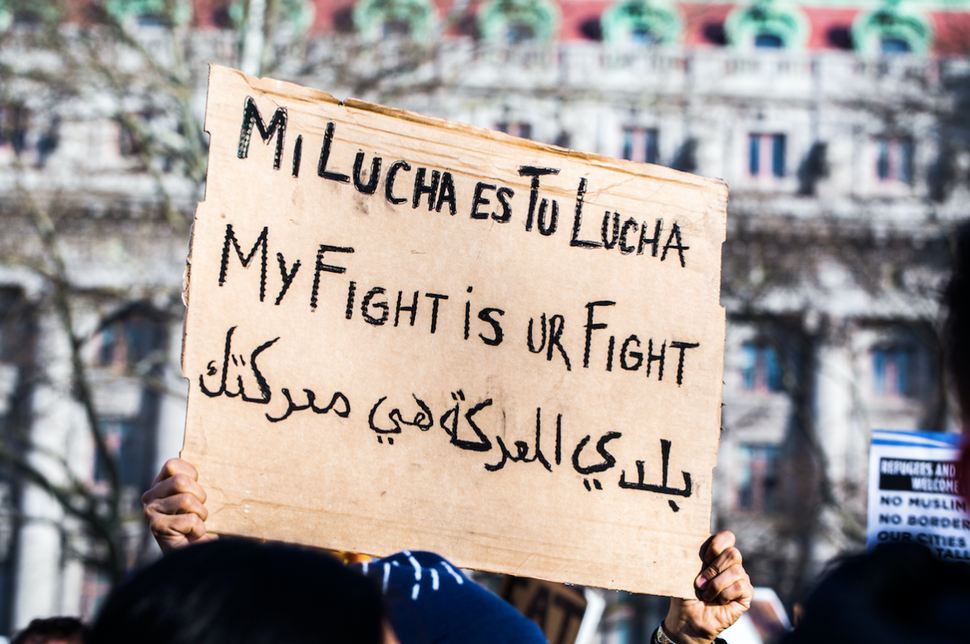 MI LUCHA ES TU LUCHA
MY FIGHT IS UR FIGHT
بلدي المعركة هي معركتك
REFUGEES AND
WELCOME
NO MUSLIM
NO BORDER
OUR CITIES
TALL